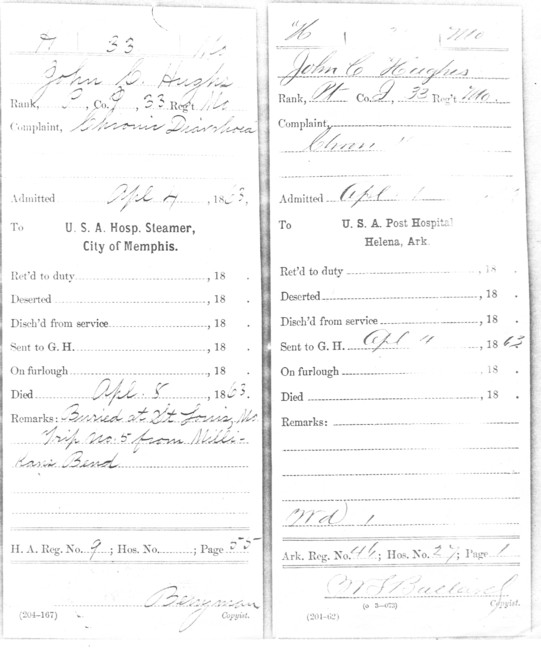 H 33 Mo
John C. Hughs
Rank, P, Co. J, 33 Reg't Mo
Complaint, Chronic Diarrhoea
Admitted Apl 4, 1863.
To U. S. A. Hosp. Steamer,
City of Memphis.
Ret'd to duty, 18 .
Deserted, 18 .
Disch'd from service, 18 .
Sent to G. H., 18 .
On furlough, 18 .
Died Apl. 8, 1863.
Remarks: Buried at St Louis, Mo
Trip No. 5 from Milli-
kans Bend
H. A. Reg. No. 9; Hos. No. ; Page 55
Berryman
(204–167) Copyist.
H Mo
John C Hughes
Rank, Pt Co. J, 33 Reg't Mo.
Complaint,
Chron "
Admitted Apl
To U. S. A. Post Hospital
Helena, Ark.
Ret'd to duty, 18 .
Deserted, 18 .
Disch'd from service, 18 .
Sent to G. H. Apl 4, 1863
On furlough, 18 .
Died, 18 .
Remarks:
Wd 1
Ark. Reg. No. 46; Hos. No. 27; Page 1
(6 3–073) Copyist.
(204–62)